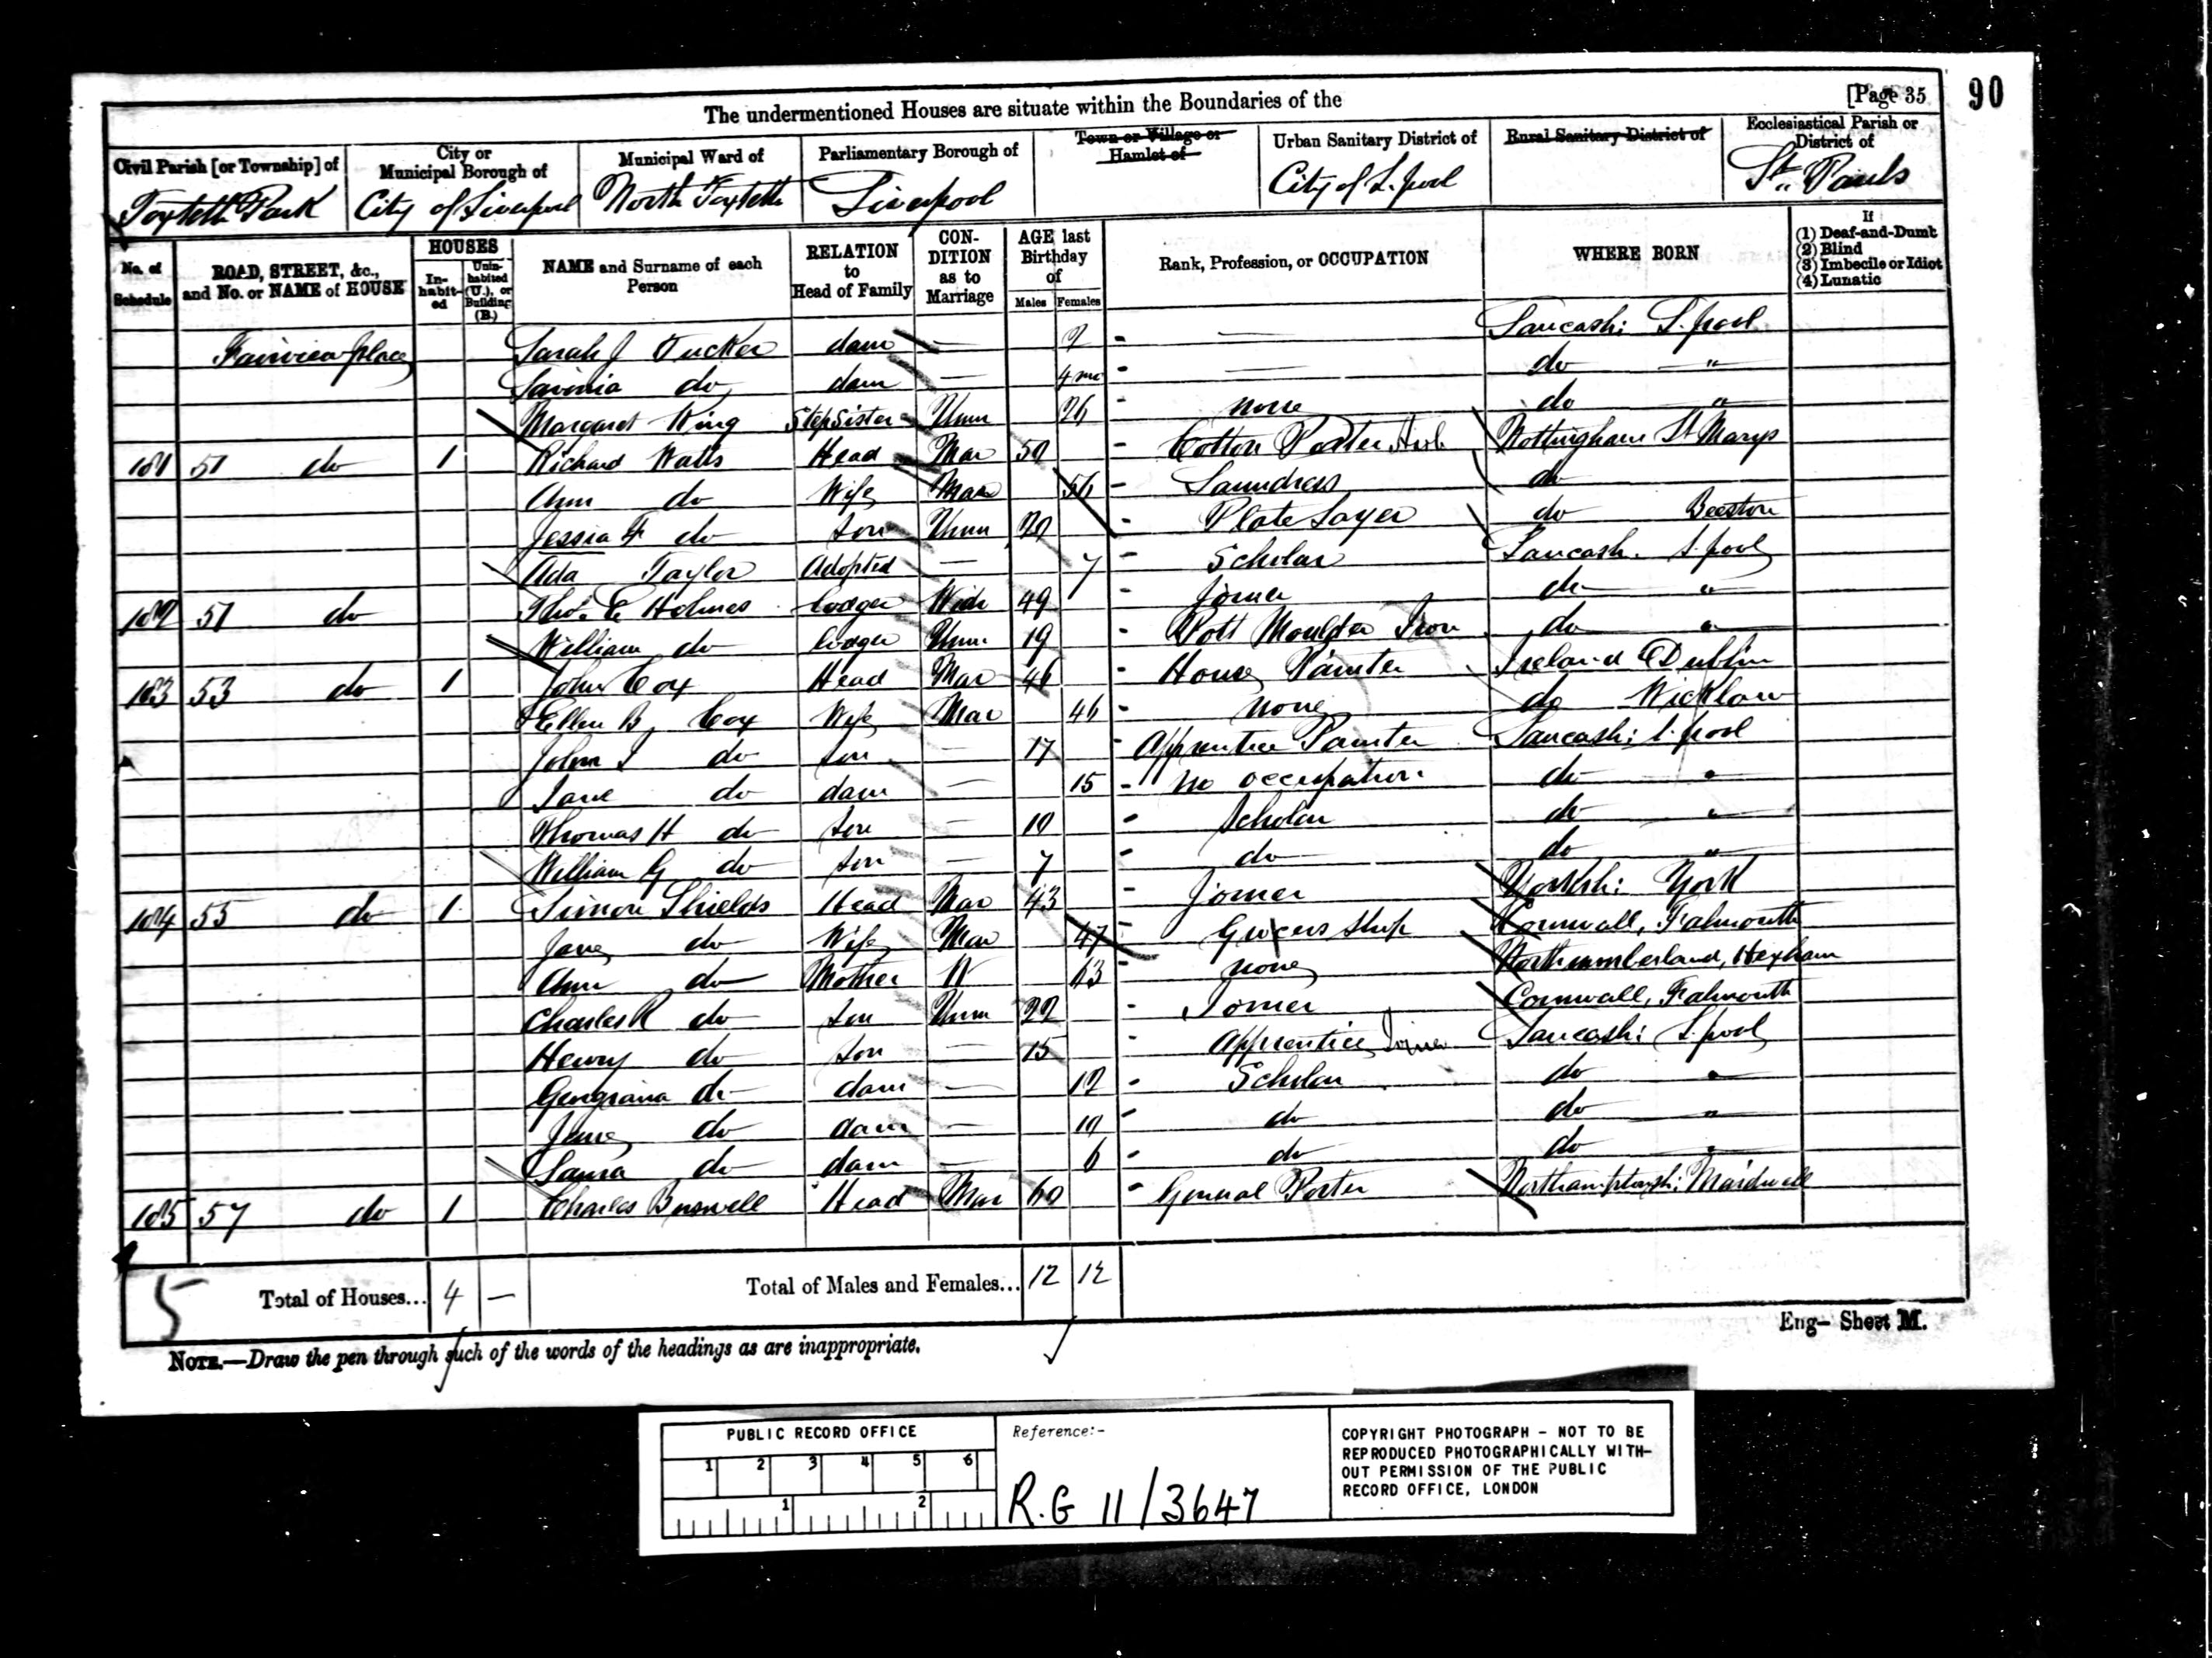 The undermentioned Houses are situate within the Boundaries of the [Page 35 90
Civil Parish [or Township] of City or Municipal Borough of Municipal Ward of Parliamentary Borough of Town or Village or Hamlet of Urban Sanitary District of Rural Sanitary District of Ecclesiastical Parish or District of
Toxteth Park City of Liverpool North Toxteth Liverpool City of L.pool St. Pauls
No. of Schedule ROAD, STREET, &c., and No. or NAME of HOUSE HOUSES In-habit-ed Unin-habited (U.), or Building (B.) NAME and Surname of each Person RELATION to Head of Family CON-DITION as to Marriage AGE last Birthday of Males Females Rank, Profession, or OCCUPATION WHERE BORN If (1) Deaf-and-Dumb (2) Blind (3) Imbecile or Idiot (4) Lunatic
Fairview place Sarah J Tucker daur — 2 — Lancash: L.pool
Lavinia do daur — 4 mo — do "
Margaret King Stepsister Unm 26 none do "
181 51 do 1 Richard Watts Head Mar 50 Cotton Porter Nottingham St Marys
Ann do Wife Mar 56 Laundress do
Jessia F do Son Unm 20 Plate Layer do Beeston
Ada Taylor Adopted — 7 Scholar Lancash. L.pool
182 51 do Thos. E Holmes lodger Widr 49 Joiner do "
William do lodger Unm 19 Pott Moulder Iron do "
183 53 do 1 John Cox Head Mar 46 House Painter Ireland Dublin
Ellen B, Cox Wife Mar 46 none do Wicklow
John J do Son — 17 Apprentice Painter Lancash: L.pool
Jane do daur — 15 no occupation do "
Thomas H do Son — 10 Scholar do "
William G do Son — 7 do do "
184 55 do 1 Simon Shields Head Mar 43 Joiner Yorksh: York
Jane do Wife Mar 47 Grocers Shop Cornwall, Falmouth
Ann do Mother W 63 none Northumberland, Hexham
Charles R do Son Unm 22 Joiner Cornwall, Falmouth
Henry do Son — 15 Apprentice Joiner Lancash: L.pool
Georgiana do daur — 12 Scholar do "
Jane do daur — 10 do do "
Laura do daur — 6 do do "
185 57 do 1 Charles Buswell Head Mar 60 General Porter Northamptonsh: Maidwell
5 Total of Houses... 4 — Total of Males and Females... 12 12
Eng- Sheet M.
NOTE.—Draw the pen through such of the words of the headings as are inappropriate.
PUBLIC RECORD OFFICE
1 2 3 4 5 6
1 2
Reference:-
R.G 11/3647
COPYRIGHT PHOTOGRAPH - NOT TO BE
REPRODUCED PHOTOGRAPHICALLY WITH-
OUT PERMISSION OF THE PUBLIC
RECORD OFFICE, LONDON